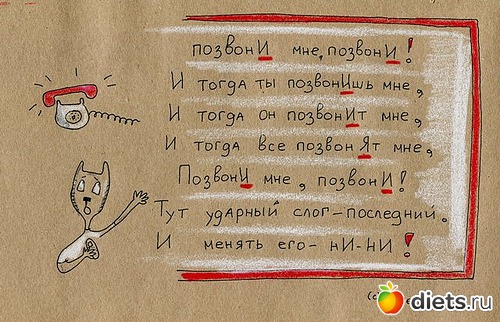 позвонИ мне, позвонИ!
И тогда ты позвонИшь мне,
И тогда он позвонИт мне,
И тогда все позвонЯт мне,
ПозвонИ мне, позвонИ!
Тут ударный слог - последний,
И менять его - нИ-НИ!
diets.ru